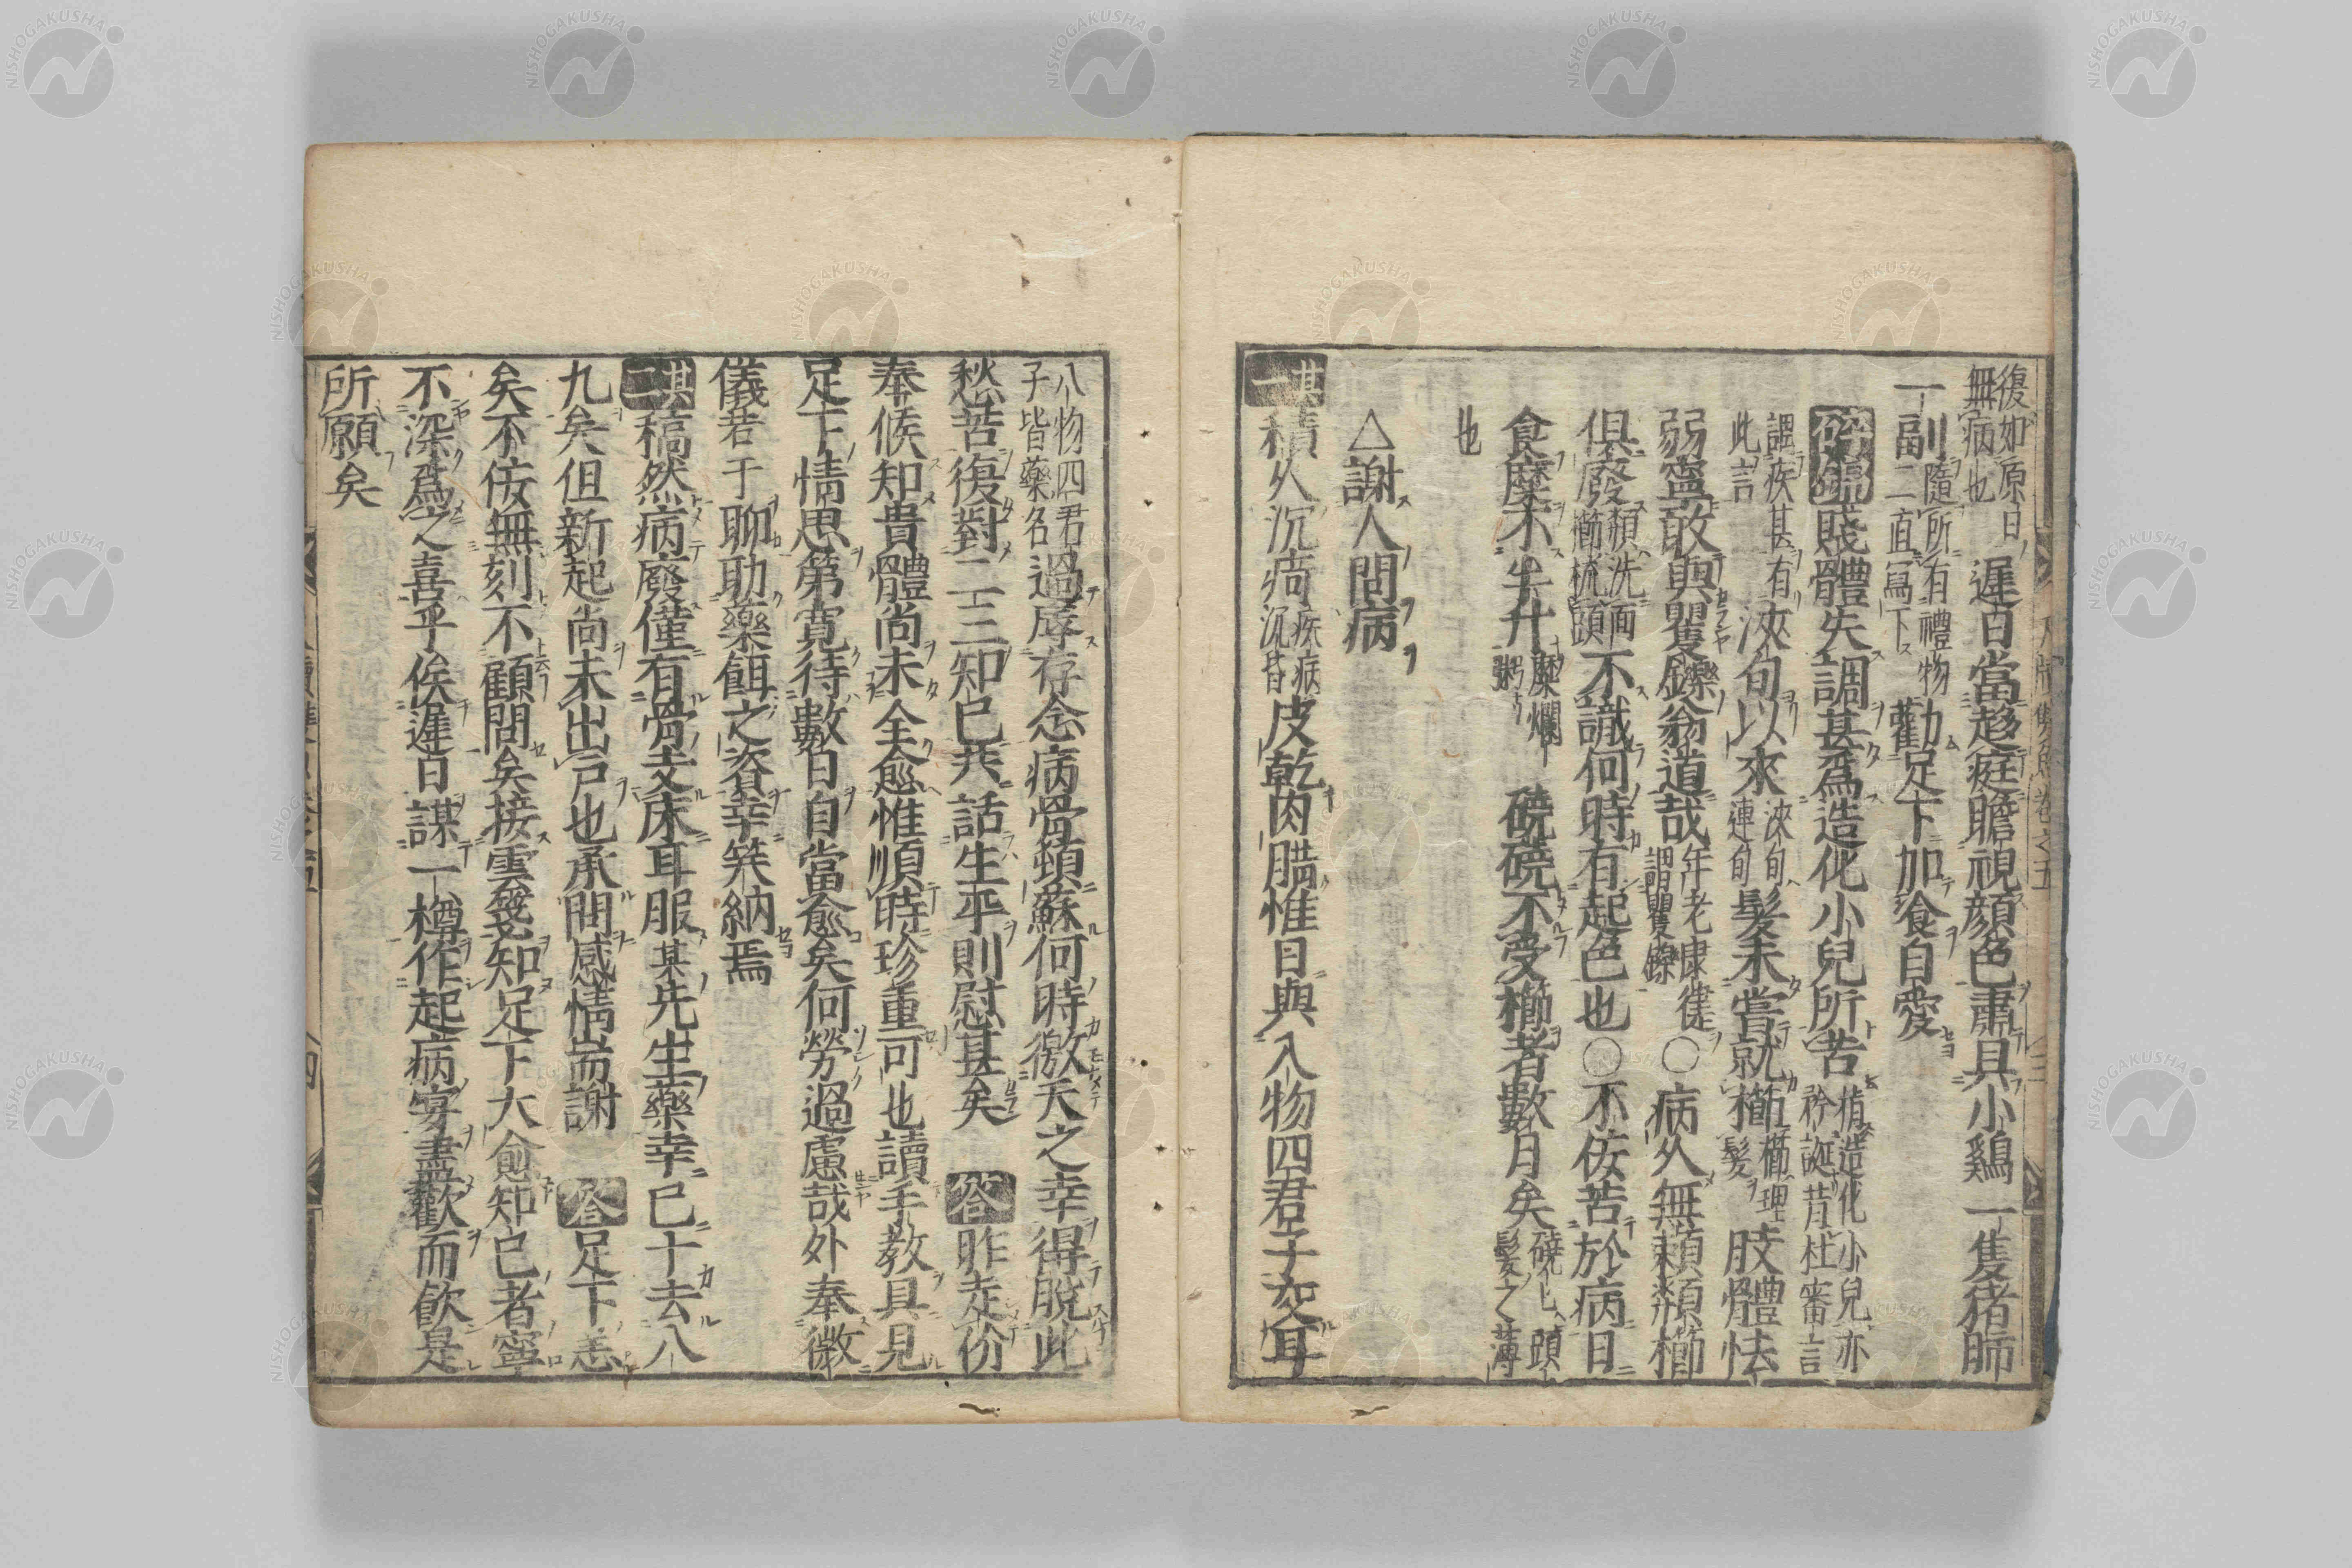 復如原日
無病也
遲日當趍庭瞻視顔色肅具小鷄一隻猪肺
一副
隨所有禮物
二直寫下
勸足下加飡自愛
賤體失調甚爲造化小兒所苦
指造化小兒亦
矜誕昔杜審言
謂疾甚有
此言
浹旬以來
浹旬
連旬
髮未嘗就櫛
櫛理
髮
肢體怯
弱寧敢與矍鑠翁道哉
年老康健
謂矍鑠
○病久無頼頮櫛
俱廢
頮洗面
櫛梳頭
不識何時有起色也○不佞苦於病日
食糜不半升
糜爛
粥
硗硗不受櫛者數月矣
硗上頭
髮之薄
也
△謝人問病
其一 積久沉痾
疾病
沉昔
皮乾肉腊惟日與八物四君子交耳
八物四君
子皆藥名
過辱存念病骨頓蘇何時徼天之幸得脱此
愁苦復對二三知已共話生平則慰甚矣 答 昨走价
奉候知貴體尚未全愈惟順時珍重可也讀手教具見
足下情思第寛待數日自當愈矣何勞過慮哉外奉微
儀若干聊助藥餌之資幸笑納焉
其二 稿然病廢僅有骨支床耳服某先生藥幸已十去八
九矣但新起尚未出戸也承問感情耑謝 答 足下恙
矣不佞無刻不顧問矣接雲箋知足下大愈知已者寧
不深爲之喜乎俟遲日謀一樽作起病宴盡歡而飲是
所願矣